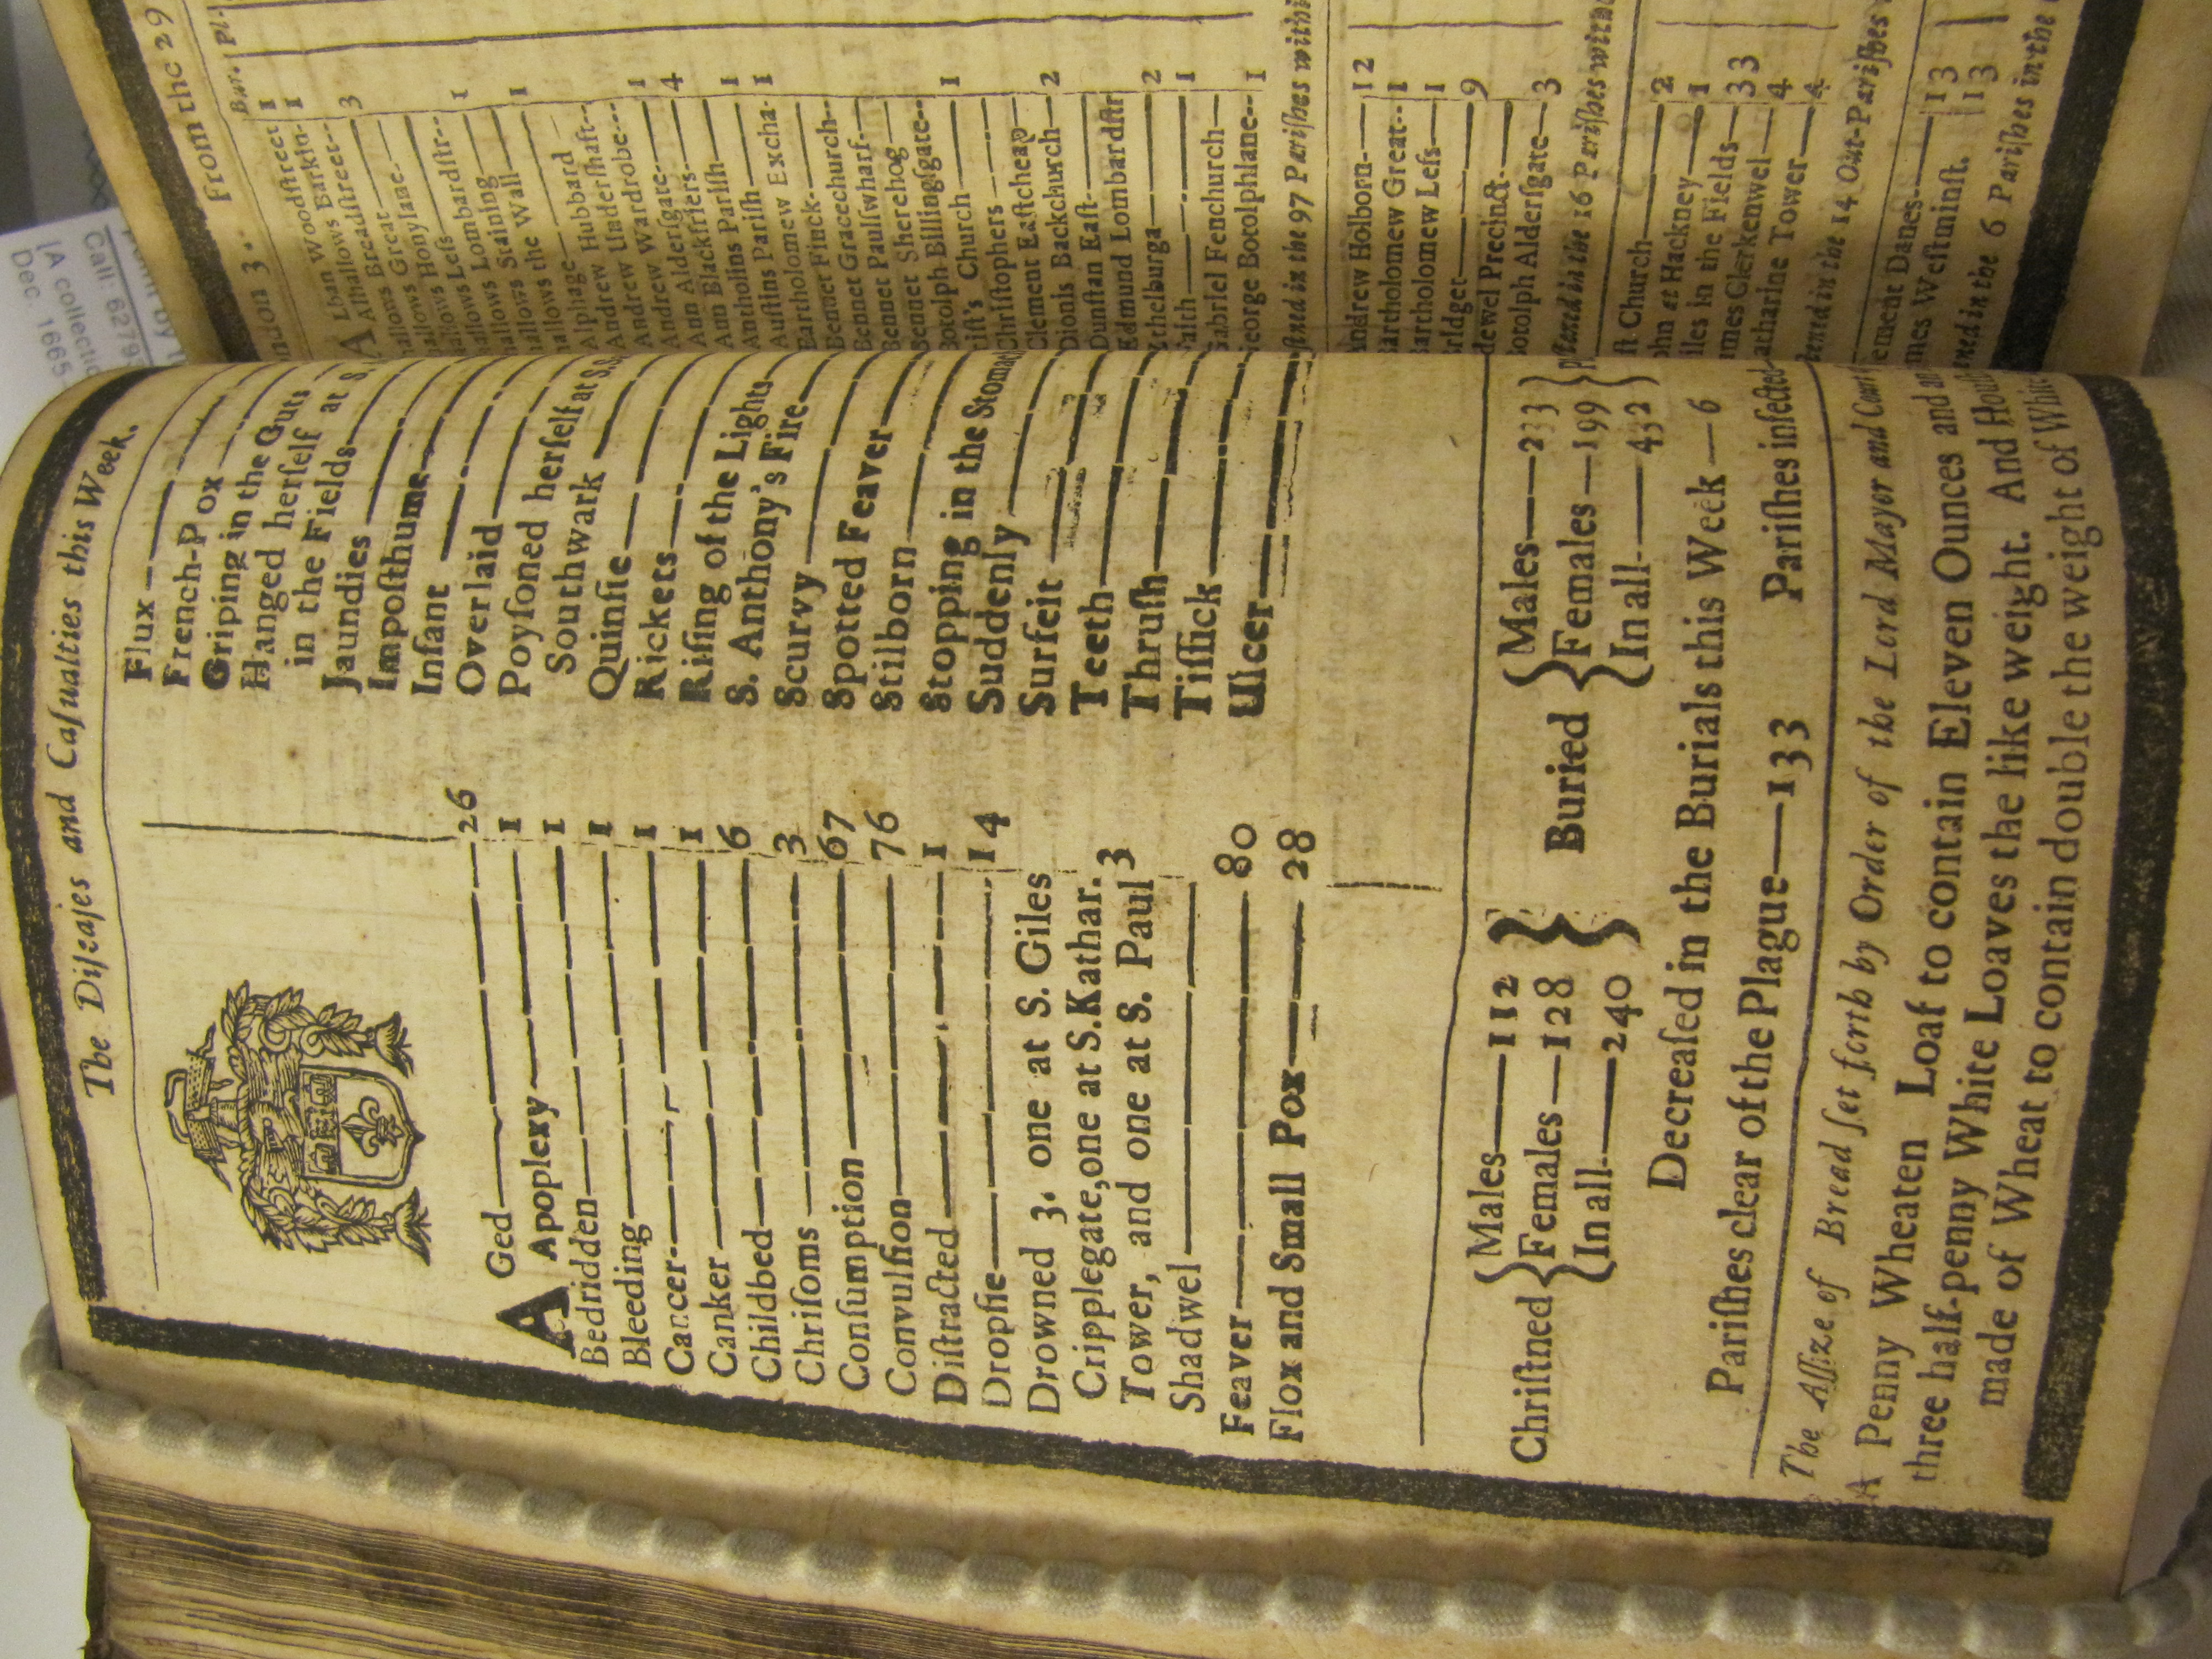 The Diseases and Casualties this Week.
AGed 26
Apoplexy 1
Bedridden 1
Bleeding 1
Cancer 1
Canker 1
Childbed 6
Chrisoms 3
Conſumption 67
Convulſion 76
Diſtracted 1
Dropſie 14
Drowned 3. one at S. Giles
Cripplegate, one at S. Kathar.
Tower, and one at S. Paul 3
Shadwel
Feaver 80
Flox and Small Pox 28
Flux
French-Pox
Griping in the Guts
Hanged herſelf at S.
in the Fields
Jaundies
Impoſthume
Infant
Overlaid
Poyſoned herſelf at S.
Southwark
Quinſie
Rickets
Riſing of the Lights
S. Anthony's Fire
Scurvy
Spotted Feaver
Stilborn
Stopping in the Stomac
Suddenly
Surfeit
Teeth
Thruſh
Tiſſick
Ulcer
Chriſtned { Males 112
Females 128
In all 240 }
Buried { Males 233
Females 199
In all 432 }
Decreaſed in the Burials this Week — 6
Pariſhes clear of the Plague — 133 Pariſhes infected
The Aſſize of Bread ſet forth by Order of the Lord Mayer and Court
A Penny Wheaten Loaf to contain Eleven Ounces and
three half-penny White Loaves the like weight. And
made of Wheat to contain double the weight of
ondon 3 From the 29
Bur. Pl.
ALban Woodſtreet 1
Alhallows Barkin 1
Alhallows Breadſtreet 3
allows Great
allows Honylane
allows Leſs 1
allows Lombardſtr
allows Staining 1
allows the Wall
Alphage
Andrew Hubbard
Andrew Underſhaft
Andrew Wardrobe 1
Ann Alderſgate 4
Ann Blackfriers
Antholins Pariſh 1
Auſtins Pariſh 1
Bartholomew Excha.
Bennet Finck
Bennet Gracechurch
Bennet Paulſwharf
Bennet Sherehog
Botolph Billingſgate
riſt's Church 1
Chriſtophers
Clement Eaſtcheap
Dionis Backchurch 2
Dunſtan Eaſt
Edmund Lombardſtr
Ethelburga 2
Faith 1
Gabriel Fenchurch
George Botolphlane 1
ſtned in the 97 Pariſhes withi
Andrew Holborn 12
Bartholomew Great 1
Bartholomew Leſs 1
Bridget 9
dewel Precinct
Botolph Alderſgate 3
ſtned in the 16 Pariſhes witho
ſt Church 2
ohn at Hackney 1
iles in the Fields 33
mes Clerkenwel 4
atharine Tower 4
ſtened in the 14 Out-Pariſhes
ement Danes 13
mes Weſtminſt. 13
ened in the 6 Pariſhes in the
Call: 6279
[A collectio
Dec. 1665